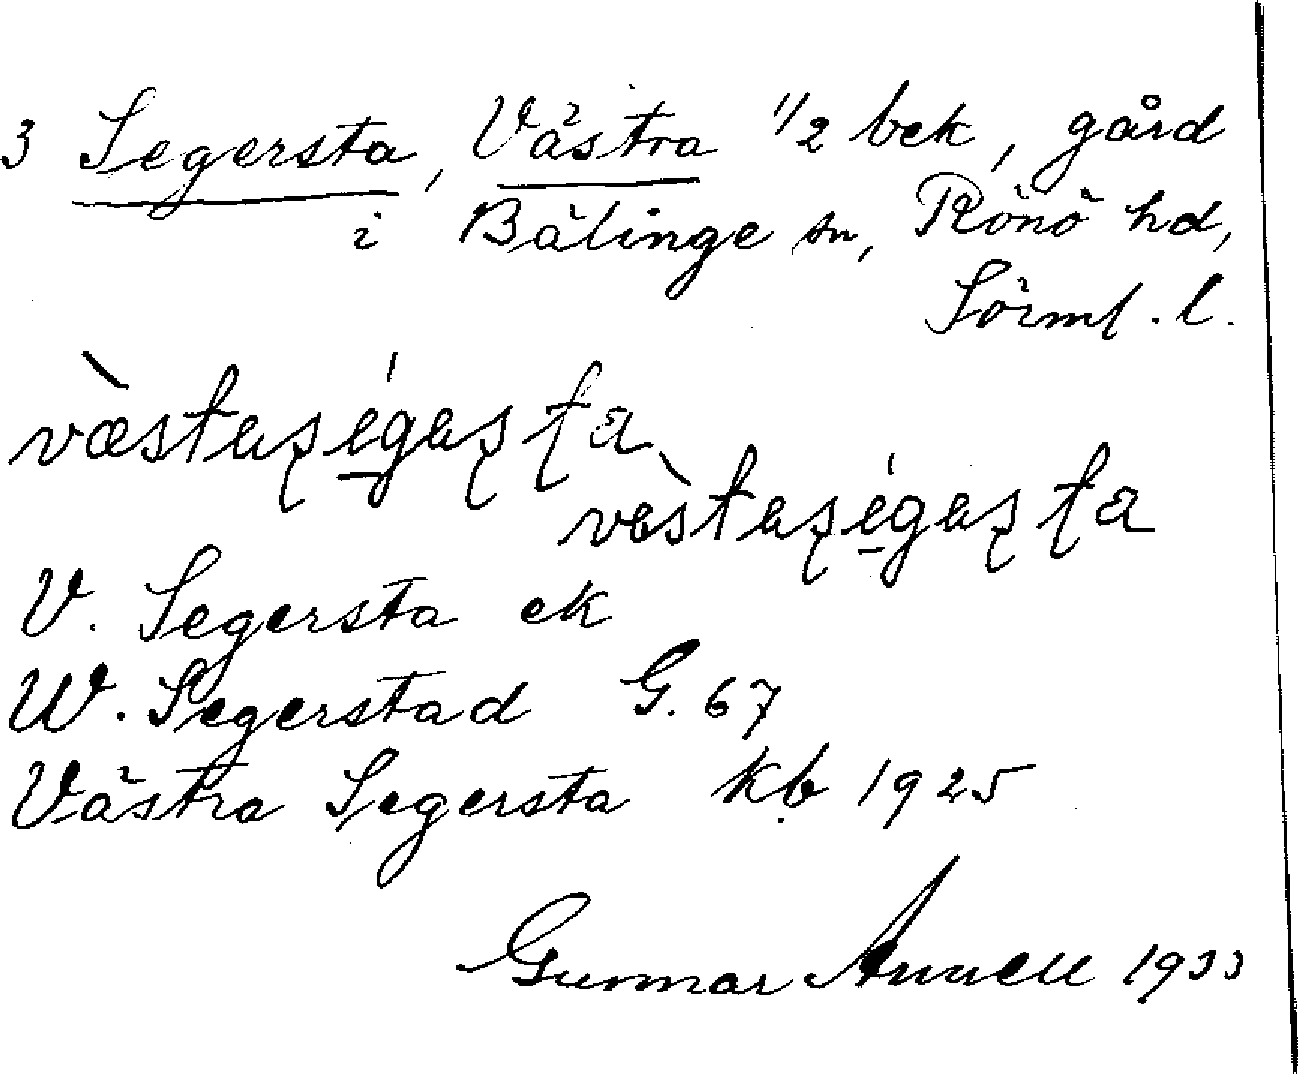 3 Segersta, Västra 1/2 bek, gård
i Bälinge sn, Rönö hd,
Sörml. l.
V. Segersta ek
W. Segerstad G. 67
Västra Segersta kb 1925
Gunnar Annell 1933